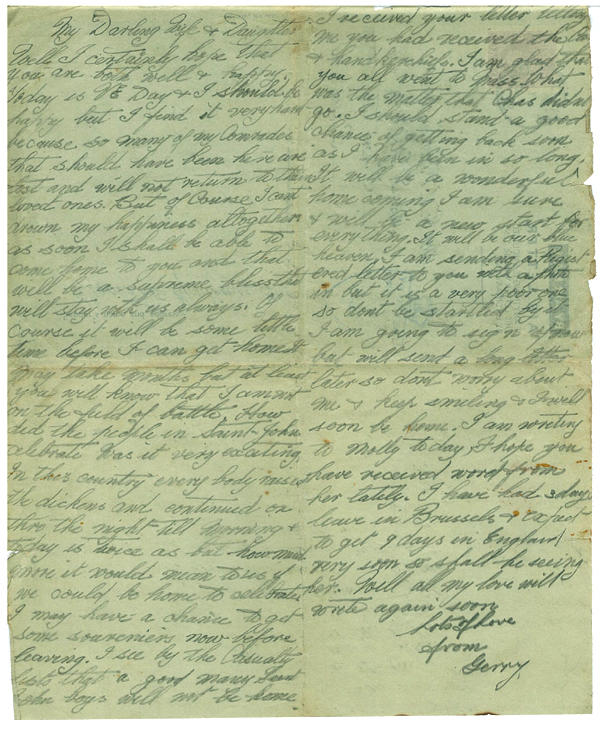 My Darling Wife & Daughter
Well I certainly hope that
you are both well & happy.
Today is VE Day & I should be
happy but I find it very hard
because so many of my Comrades
that should have been here are
lost and will not return to their
loved ones. But of Course I cant
drown my happiness alltogether
as soon I shall be able to
come home to you and that
will be a supreme bliss that
will stay with us always. Of
Course it will be some little
time before I can get home it
may take months but at least
you will know that I am not
on the field of battle. How
did the people in Saint John
celebrate was it very exciting
In this country every body raised
the dickens and continued on
thro the night till morning &
today is twice as but how much
more it would mean to us if
we could be home to celebrate
I may have a chance to get
some souveniers now before
leaving. I see by the Casualty
lists that a good many Saint
John boys will not be home
I received your letter telling
me you had received the
& handkerchiefs. I am glad that
you all went to Mass. What
was the matter that Chas didnt
go. I should stand a good
chance of getting back soon
as I have been in so long.
It will be a wonderful
home coming I am sure
& will be a new start for
everything. It will be our blue
heaven. I am sending a Regist
ered letter to you with a photo
in but it is a very poor one
so dont be startled by it
I am going to sign off now
but will send a long letter
later so dont worry about
me & keep smeling & I will
soon be home. I am writing
to Molly today I hope you
have received word from
her lately. I have had 3 days
leave in Brussels & expect
to get 9 days in England
very soon so shall be seeing
her. Well all my love will
write again soon
Lots of Love
from
Gerry